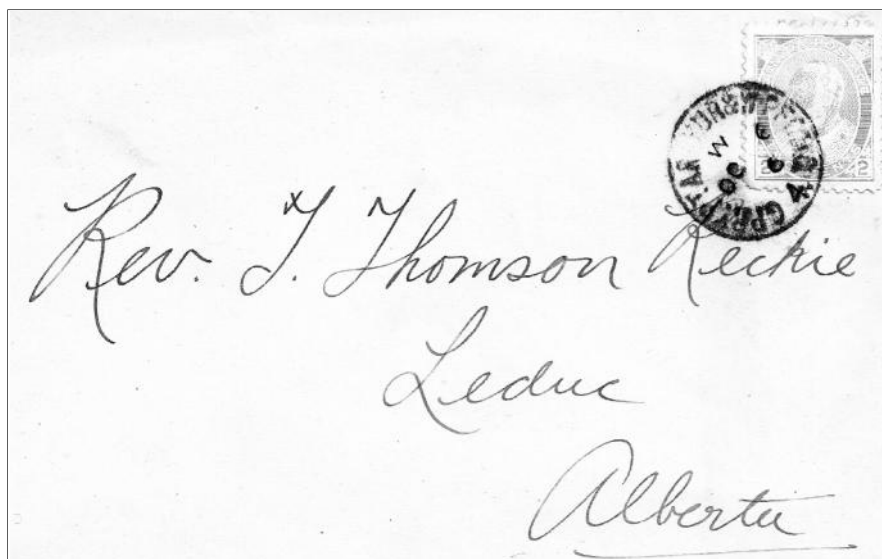 2 2
Rev. J. Thomson Reckie
Leduc
Alberta